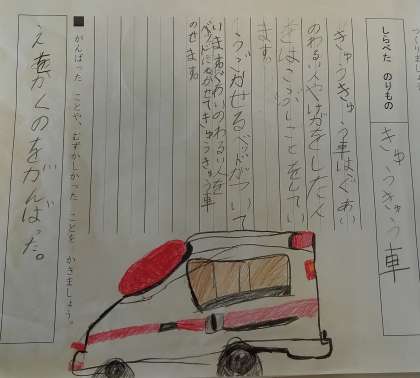 しらべた のりもの
きゅうきゅう車
きゅうきゅう車はぐあい
のわるい人やけがをした人
をはこぶしごとをしてい
ます。
うごかせるベッドがついて
います。ぐあいのわるい人を
ベッドにねかせてきゅうきゅう車
のせます。
■ がんばった ことや、むずかしかった ことを かきましょう。
えをかくのをがんばった。